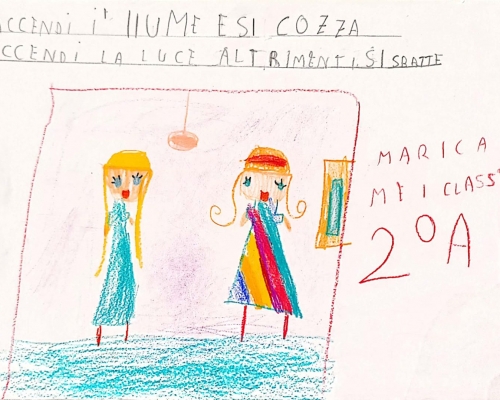 ACCENDI i' llUME E SI COZZA
ACCENDI LA LUCE ALTRIMENTI SI SBATTE
MARICA
MEI CLASS
2ºA